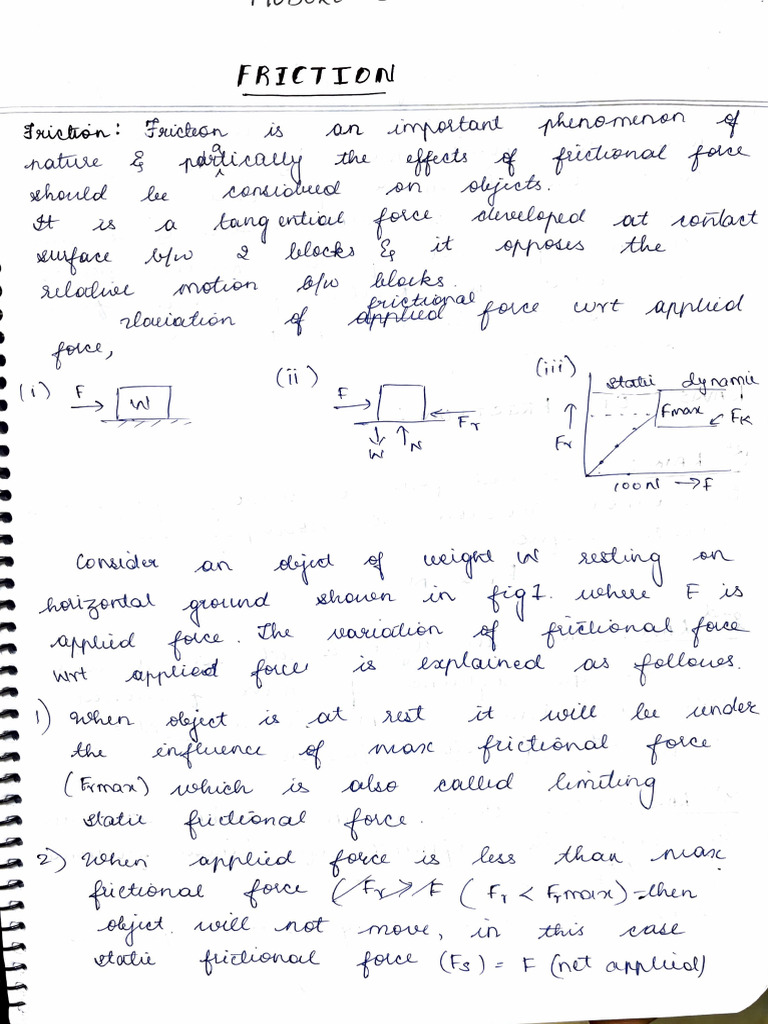 FRICTION
Friction: Friction is an important phenomenon of
nature & partically the effects of frictional force
should be considued on objects.
It is a tangential force developed at contact
surface b/w 2 blocks & it opposes the
relative motion b/w blocks.
Variation of applied frictional force wrt applied
force,
(i) F W
(ii) F Fr W N
(iii) static dynamic Fmax FK Fr 100N → F
Consider an object of weight W resting on
horizontal ground shown in fig 1. where F is
applied force. The variation of frictional force
wrt applied force is explained as follows.
1) When object is at rest it will be under
the influence of max frictional force
(Frmax) which is also called limiting
static frictional force.
2) When applied force is less than max
frictional force (Fr > F (Fr < Frmax) then
object will not move, in this case
static frictional force (Fs) = F (net applied)